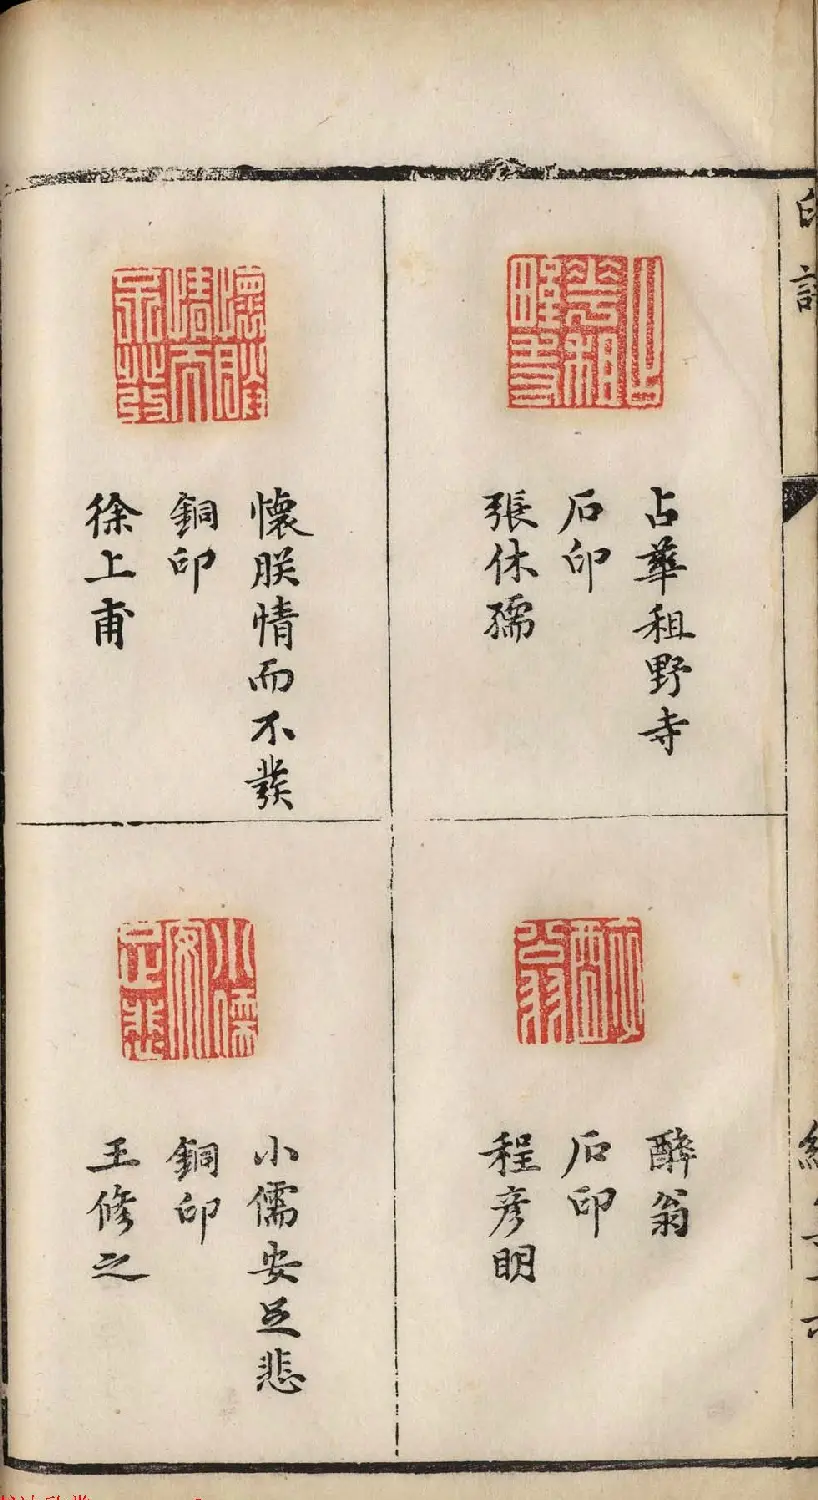 占華租野寺
石印
張休孺
醉翁
石印
程彦明
懷朕情而不發
銅印
徐上甫
小儒安足悲
銅印
王脩之